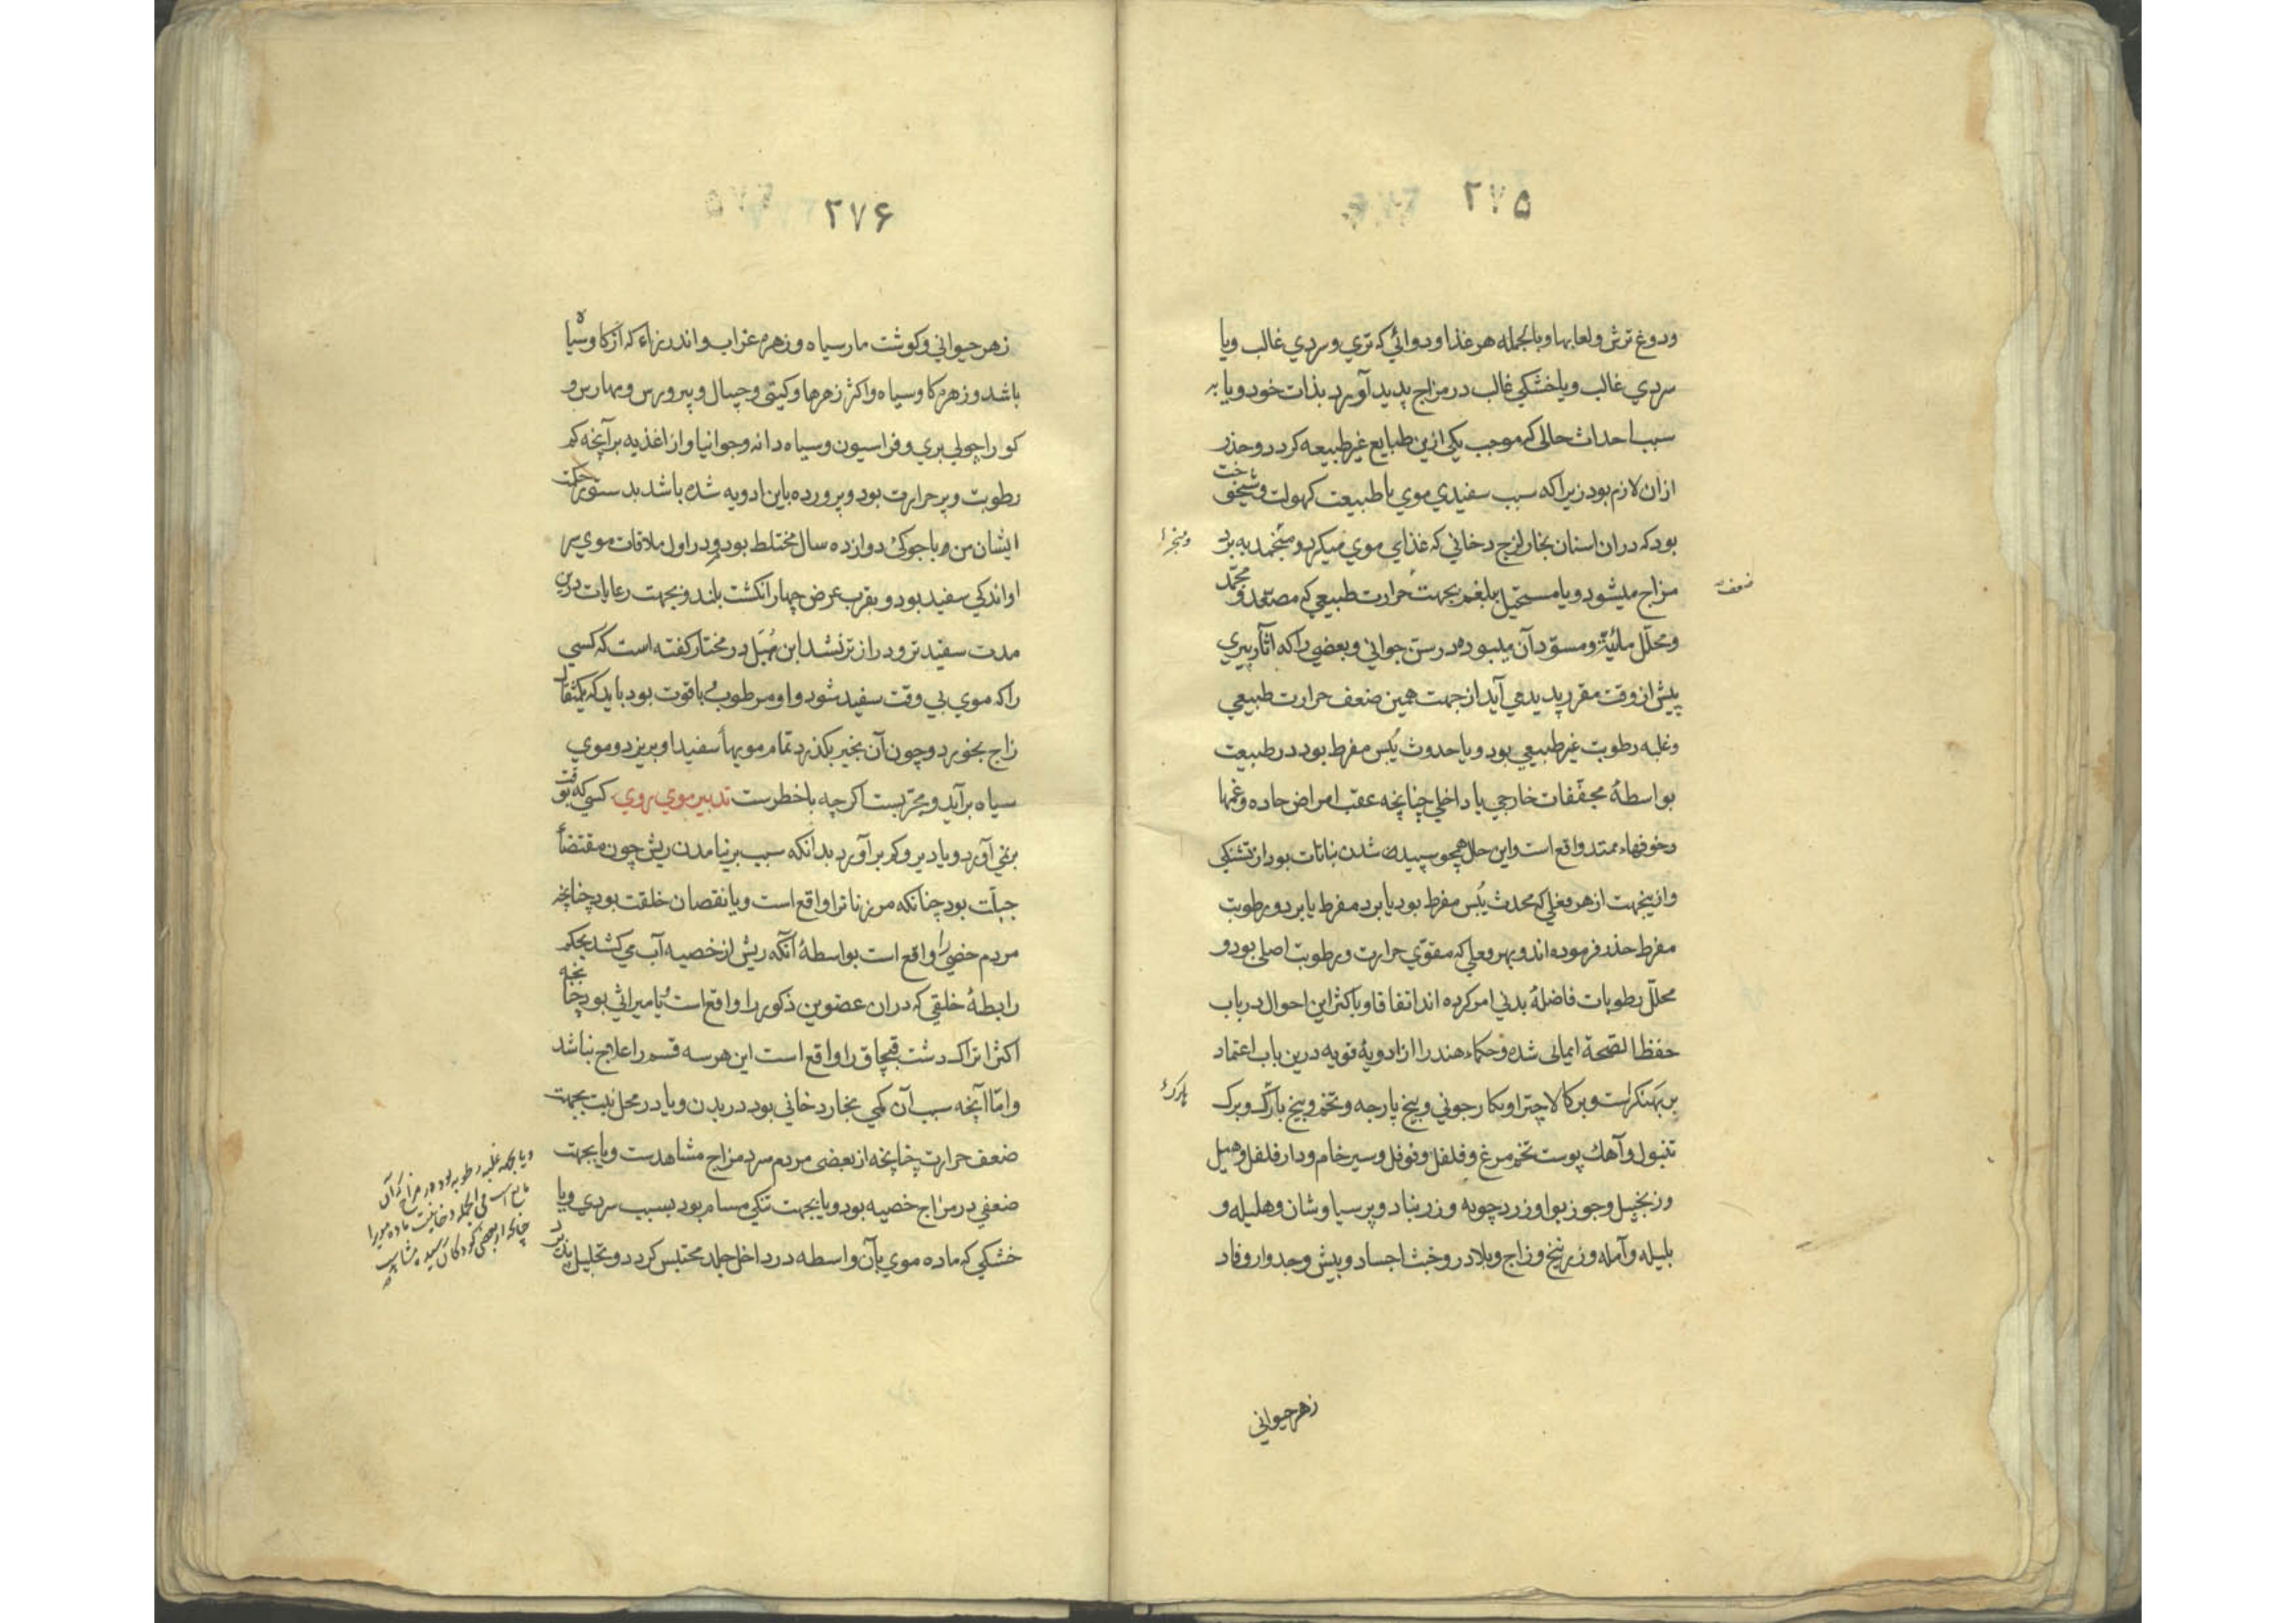 ۲۷۵
ودوغ ترش ولعابها وبالجمله هر غذا ودوائي كه تري وسردي غالب ويا
سردي غالب ويا خشكي غالب در مزاج پديد آورد بذات خود ويا به
سبب احداث حالى كه موجب يكى ازين طبايع غير طبيعه كردد وحذر
ازان لازم بود زيرا كه سبب سفيدي موي يا طبيعت كهولت وشيخوخت
بود كه دران اسنان بخار لزج دخاني كه غذاي موي ميكردد منجمد به برد
مزاج ميشود ويا مستحيل ببلغم بجهت حرارت طبيعي كه مصعد ومجمد
ضعف
ومحلّل مائيّة ومسوّد آن ميبود در سنّ جواني وبعضي را كه آثار پيري
پيش از وقت مقرر پديد مي آيد از جهت همين ضعف حرارت طبيعي
وغلبه رطوبت غير طبيعي بود ويا حدوث يُبس مفرط بود در طبيعت
بواسطهٔ مجفّفات خارجي يا داخلي چنانچه عقب امراض حاده وغمها
وخوفهاء ممتد واقع است واين حال همچو سپيدى شدن نباتات بود از تشنكي
وازينجهت از هر فعلي كه محدث يُبس مفرط بود يا برد مفرط يا برد ورطوبت
مفرط حذر فرموده اند وبهر فعلي كه مقوّي حرارت ورطوبت اصلى بود و
محلّل رطوبات فاضلهٔ بدني امر كرده اند اتفاقا وباكثر اين احوال در باب
حفظ الصّحة ايمائى شده وحكماء هند را از ادويهٔ قويه درين باب اعتماد
بر بهنكراست وبر كالاچترا وبكارجوني وبيخ پارجه وتخم وبيخ بارك وبرك
تنبول وآهك پوست تخم مرغ وفلفل وفوفل وسير خام ودار فلفل وهيل
وزنجبيل وجوز بوا وزردچوبه وزرنباد وپرسياوشان وهليله و
بليله وآمله وزرنيخ وزاج وبلادر وخبث اجساد وبيش وجدوار وفاد
زهر حيواني
۲۷۶
زهر حيواني وكوشت مار سياه وزهره غراب واندرزهاء كه از كاو سياه
باشد وزهره كاو سياه واكثر زهرها وكيتى وچپال وپرورس ومهارس و
كوراچولي بري وفراسيون وسياه دانه وجوانيا واز اغذيه برآنچه كم
رطوبت وپر حرارت بود وپرورده باين ادويه شده باشد بدستور حكمت
ايشان من وبا جوكئ دوازده سال مختلط بودم ودر اول ملاقات موي سر
او اندكي سفيد بود وبقرب عرض چهار انكشت بلند وبجهت رعايات درين
مدت سفيدتر ودرازتر نشد ابن هُبَل در مختار كفته است كه كسي
را كه موي بي وقت سفيد شود واو مرطوب وباقوت بود بايد كه يكمثقال
زاج بخورد وچون آن بخير بكذرد تمام مويهأ سفيد او بريزد وموي
سياه برآيد ومجرّبست اكرچه با خطرست تدبير موي روي كسي كه بوقت
برني آورد ويا دير وكم برآورد بدانكه سبب برنيامدن ريش چون مقتضأ
جبلّت بود چنانكه مر زنانرا واقع است ويا نقصان خلقت بود چنانچه
مردم خصي را واقع است بواسطهٔ آنكه ريش از خصيه آب مي كشد بحكم
رابطهٔ خلقي كه دران عضوين ذكور را واقع است يا ميراثي بود چنانچه
اكثر اتراك دشت قبچاق را واقع است اين هر سه قسم را علاج نباشد
وامّا آنچه سبب آن كمي بخار دخاني بود در بدن ويا در محل نبت بجهت
ضعف حرارت چنانچه از بعضي مردم سرد مزاج مشاهدست ويا بجهت
ضعفي در مزاج خصيه بود ويا بجهت تنكي مسام بود بسبب سردي ويا
خشكي كه ماده موي بآن واسطه در داخل جلد محتبس كردد وتحليل
ويا بجهت غلبه رطوبه بود در مزاج كه آن